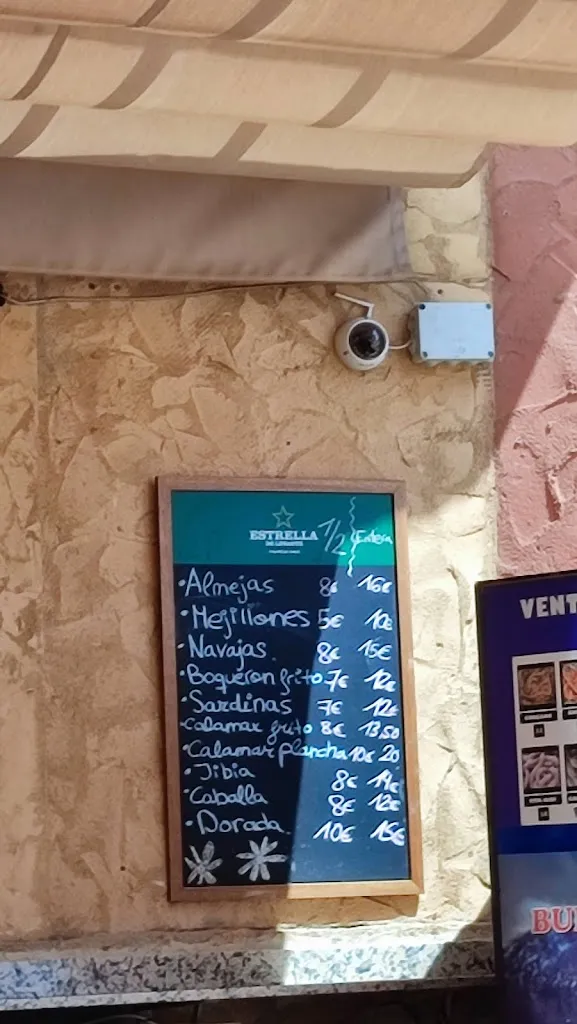 ESTRELLA
DE LEVANTE
1/2 Entera
•Almejas 8€ 16€
•Mejillones 5€ 10€
•Navajas 8€ 15€
•Boqueron frito 7€ 12€
•Sardinas 7€ 12€
•Calamar frito 8€ 13,50
•Calamar plancha 10€ 20
•Jibia 8€ 14€
•Caballa 8€ 12€
•Dorada 10€ 15€
VENT
BU